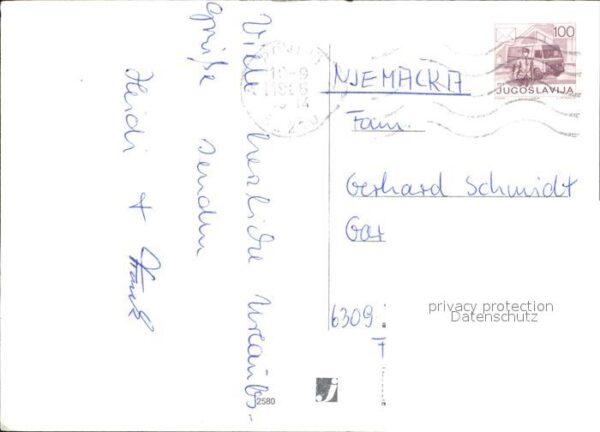 Viele herzliche Urlaubs-
grüße senden
Heidi +
100
JUGOSLAVIJA
1986
NJEMAČKA
Fam.
Gerhard Schmidt
Gar
6309
privacy protection
Datenschutz
2580
j